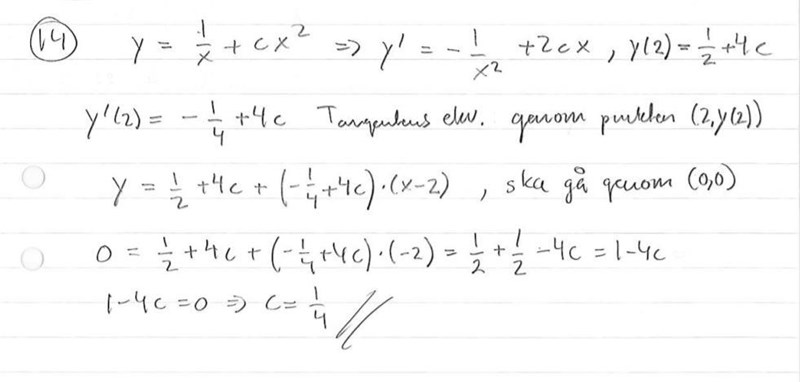 14) y = 1/x + cx² => y' = - 1/x² + 2cx , y(2) = 1/2 + 4c
y'(2) = - 1/4 + 4c Tangentens ekv. genom punkten (2, y(2))
y = 1/2 + 4c + (-1/4 + 4c)·(x-2) , ska gå genom (0,0)
0 = 1/2 + 4c + (-1/4 + 4c)·(-2) = 1/2 + 1/2 - 4c = 1-4c
1-4c = 0 => c = 1/4 //